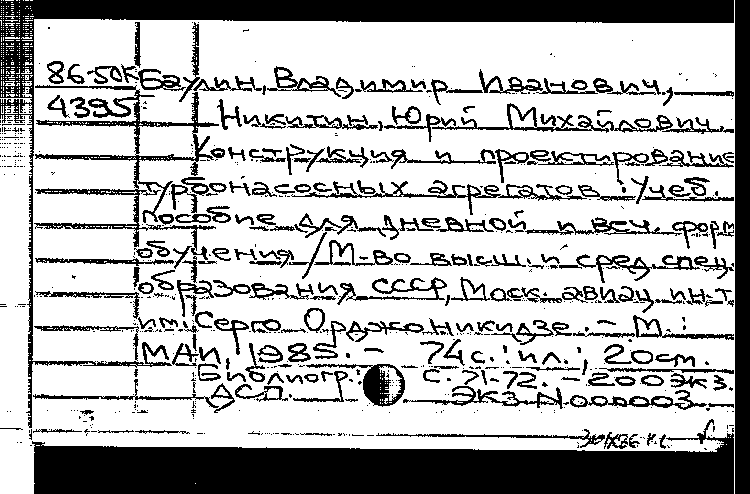 86-50К Баулин, Владимир Иванович,
4395 Никитин, Юрий Михайлович.
Конструкция и проектирование
турбонасосных агрегатов : Учеб.
пособие для дневной и веч. форм
обучения / М-во высш. и сред. спец.
образования СССР, Моск. авиац. ин-т
им. Серго Орджоникидзе. - М. :
МАИ, 1985. - 74 с. : ил. ; 20 см.
Библиогр.: с. 71-72. - 200 экз.
ДСП. Экз. N000003.